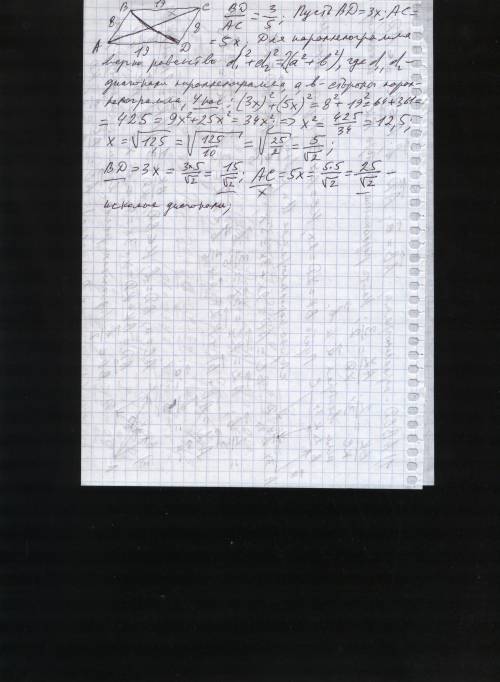 B 19 C
BD/AC = 3/5; Пусть BD=3x, AC=
8 8
= 5x. Для параллелограмма
A 19 D
верно равенство d₁²+d₂²=2(a²+b²), где d₁ d₂-
диагонали параллелограмма, a b-стороны парал-
лелограмма, У нас: (3x)²+(5x)²=8²+19²=64+361=
= 425 = 9x²+25x²=34x²; => x²=425/34=12,5;
x=√12,5 = √125/10 = √25/2 = 5/√2;
BD=3x=3×5/√2=15/√2; AC=5x=5·5/√2=25/√2 -
x
искомые диагонали;